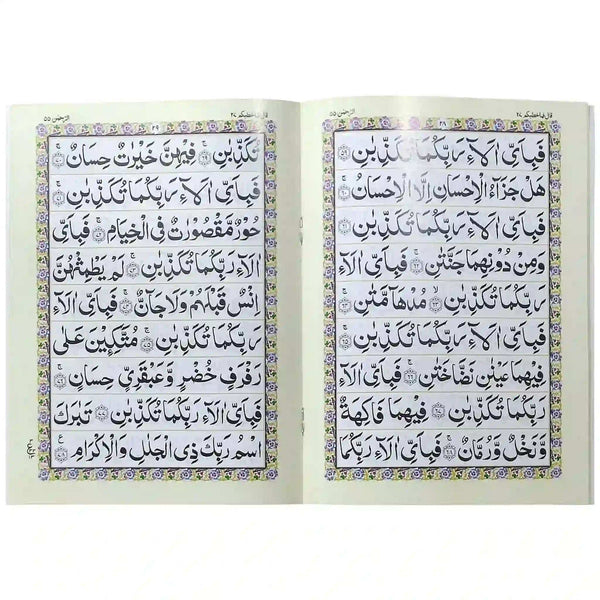 قال فما خطبكم ٢٧
الرحمٰن ٥٥
٣٨
فَبِاَیِّ اٰلَآءِ رَبِّكُمَا تُكَذِّبٰنِ ٥٩
هَلْ جَزَآءُ الْاِحْسَانِ اِلَّا الْاِحْسَانُ ٦٠
فَبِاَیِّ اٰلَآءِ رَبِّكُمَا تُكَذِّبٰنِ ٦١
وَمِنْ دُوْنِهِمَا جَنَّتٰنِ ٦٢ فَبِاَیِّ اٰلَآءِ
رَبِّكُمَا تُكَذِّبٰنِ ٦٣ مُدْهَآمَّتٰنِ ٦٤
فَبِاَیِّ اٰلَآءِ رَبِّكُمَا تُكَذِّبٰنِ ٦٥
فِیْهِمَا عَیْنٰنِ نَضَّاخَتٰنِ ٦٦ فَبِاَیِّ اٰلَآءِ
رَبِّكُمَا تُكَذِّبٰنِ ٦٧ فِیْهِمَا فَاكِهَةٌ
وَّنَخْلٌ وَّرُمَّانٌ ٦٨ فَبِاَیِّ اٰلَآءِ رَبِّكُمَا
قال فما خطبكم ٢٧
الرحمٰن ٥٥
٣٩
تُكَذِّبٰنِ ٦٩ فِیْهِنَّ خَیْرٰتٌ حِسَانٌ ٧٠
فَبِاَیِّ اٰلَآءِ رَبِّكُمَا تُكَذِّبٰنِ ٧١
حُوْرٌ مَّقْصُوْرٰتٌ فِی الْخِیَامِ ٧٢ فَبِاَیِّ
اٰلَآءِ رَبِّكُمَا تُكَذِّبٰنِ ٧٣ لَمْ یَطْمِثْهُنَّ
اِنْسٌ قَبْلَهُمْ وَلَا جَآنٌّ ٧٤ فَبِاَیِّ اٰلَآءِ
رَبِّكُمَا تُكَذِّبٰنِ ٧٥ مُتَّكِـِٕیْنَ عَلٰی
رَفْرَفٍ خُضْرٍ وَّعَبْقَرِیٍّ حِسَانٍ ٧٦
فَبِاَیِّ اٰلَآءِ رَبِّكُمَا تُكَذِّبٰنِ ٧٧ تَبٰرَكَ
اسْمُ رَبِّكَ ذِی الْجَلٰلِ وَالْاِكْرَامِ ٧٨